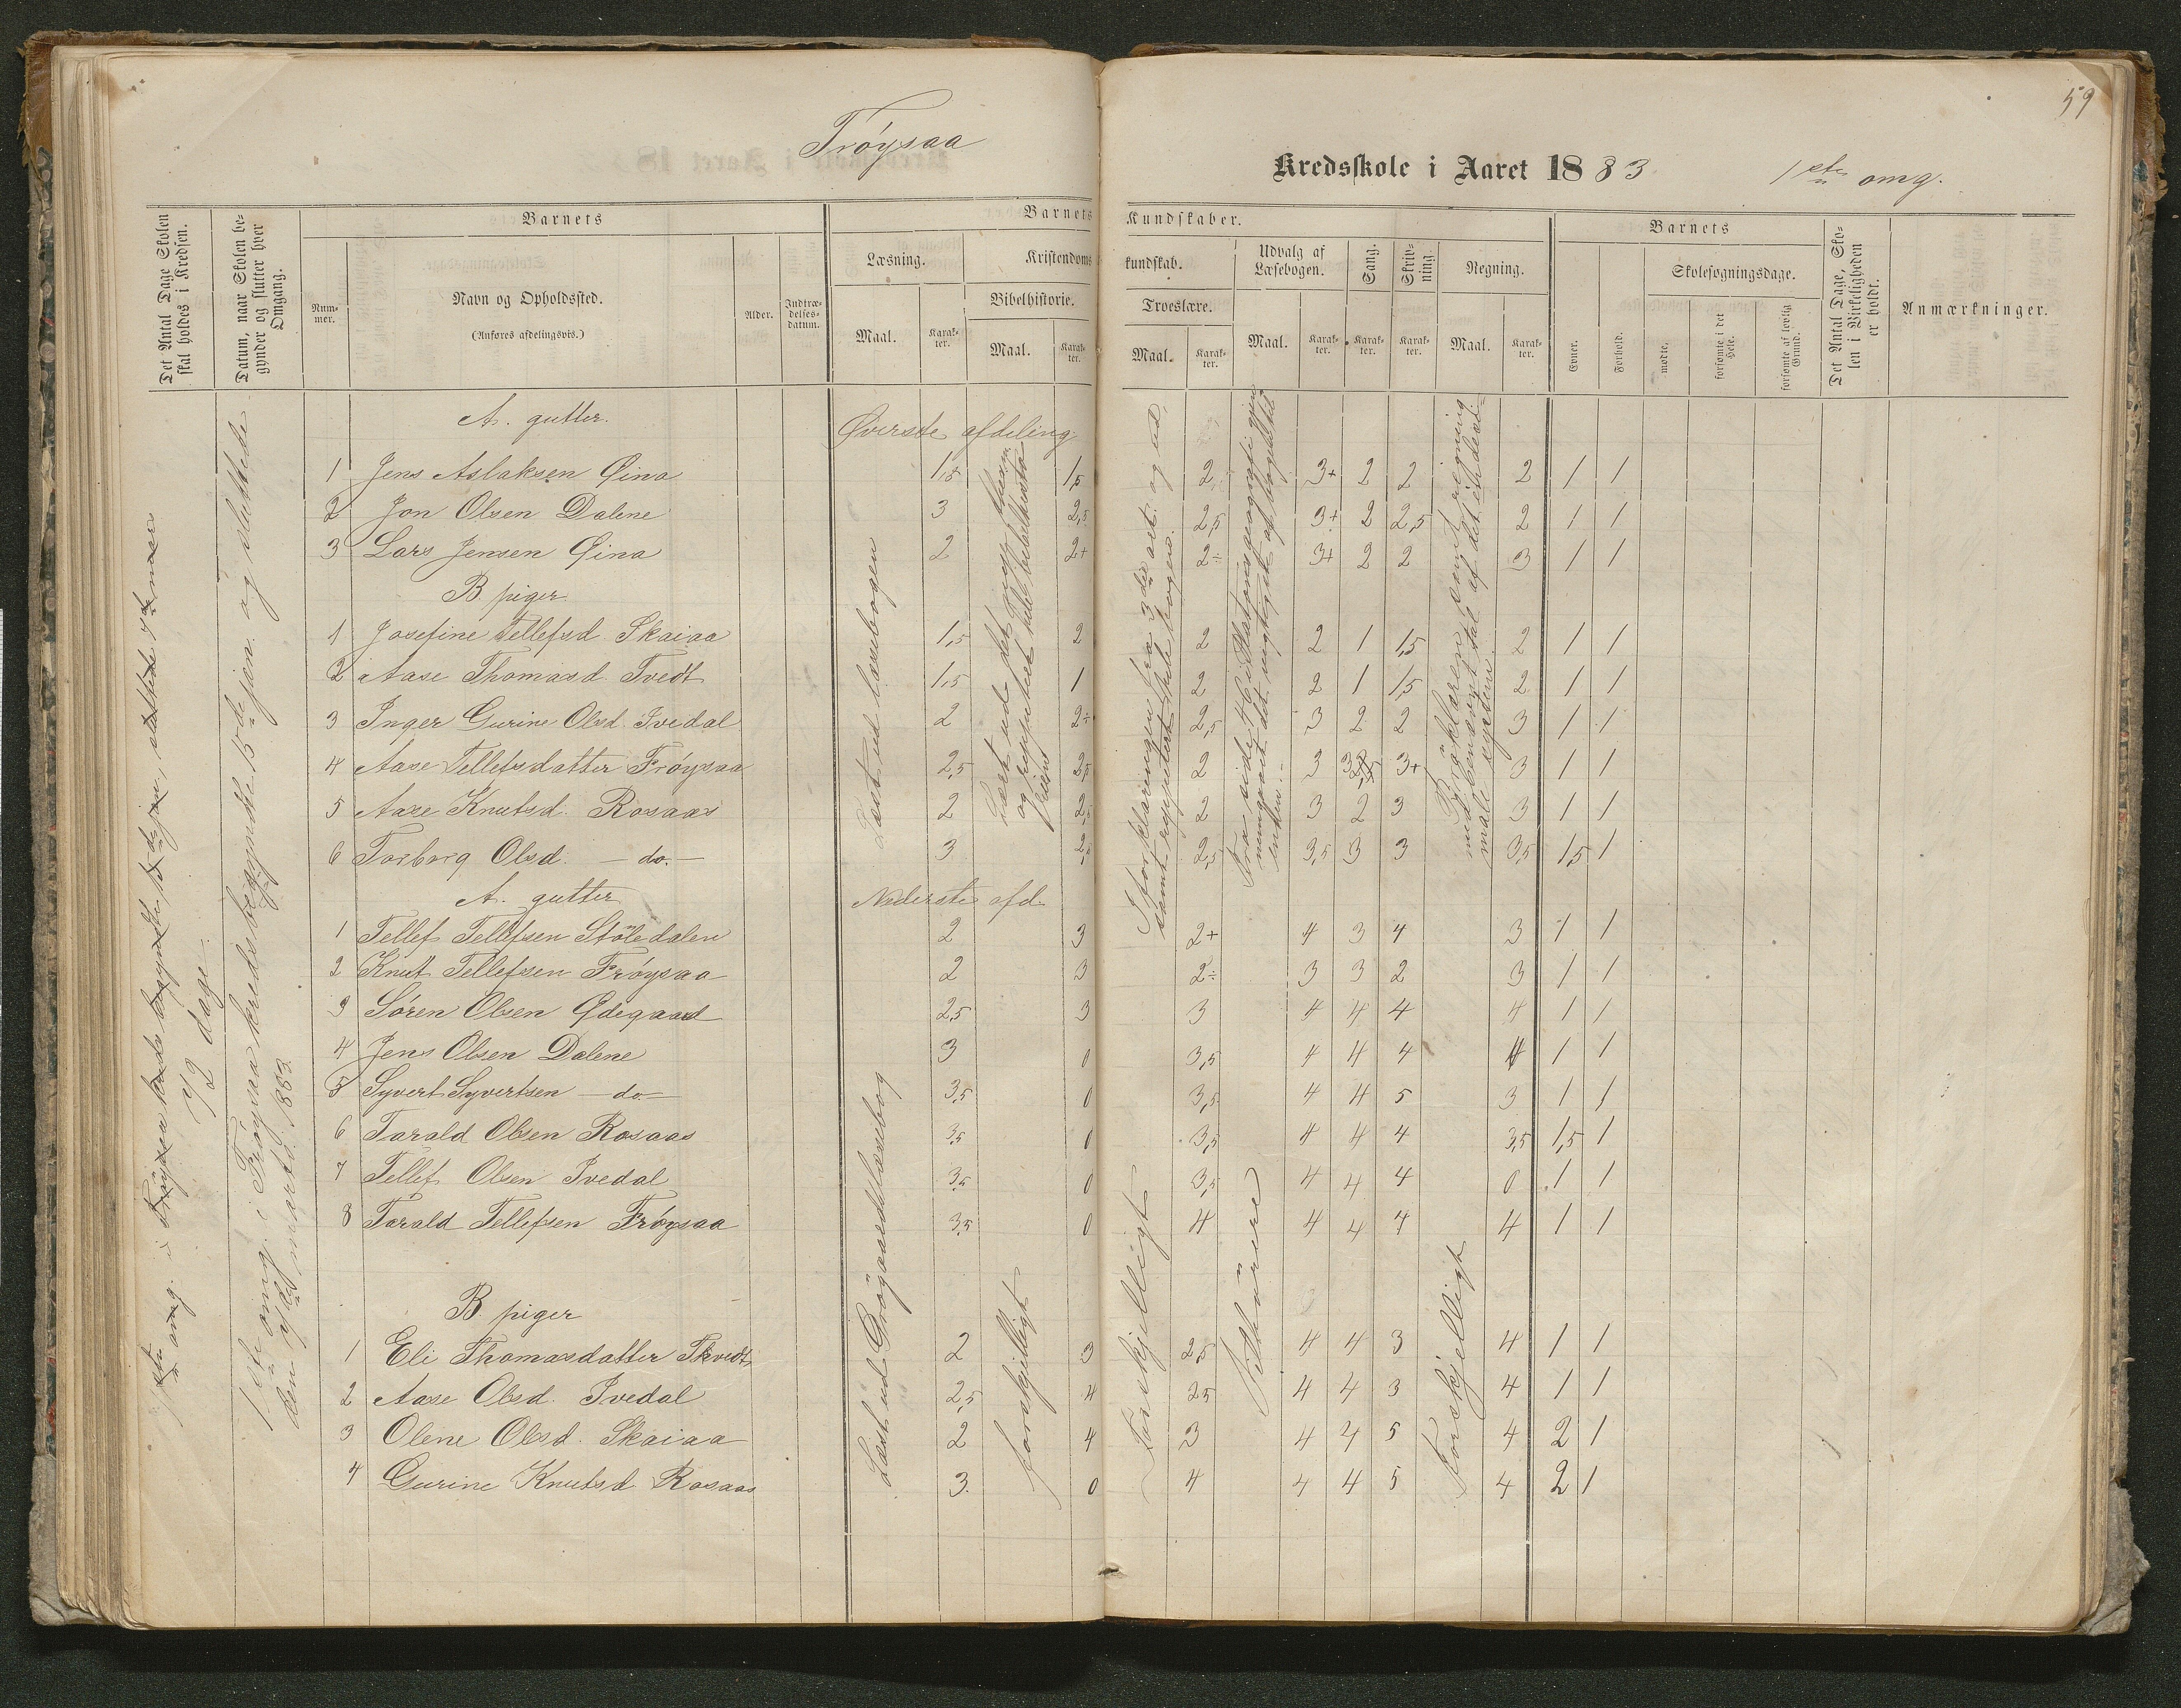 Frøysaa
Kredsskole i Aaret 1883
1ste omg.
59
Det Antal Dage Skolen skal holdes i Kredsen.
Datum, naar Skolen begynder og slutter hver Omgang.
Barnets
Nummer.
Navn og Opholdssted.
(Anføres afdelingsvis.)
Alder.
Indtrædelsesdatum.
Barnets Kundskaber.
Læsning.
Maal.
Karakter.
Kristendomskundskab.
Bibelhistorie.
Maal.
Karakter.
Troeslære.
Maal.
Karakter.
Udvalg af Læsebogen.
Maal.
Karakter.
Sang.
Karakter.
Skrivning
Karakter.
Regning.
Maal.
Karakter.
Barnets
Evner.
Forhold.
Skolesøgningsdage.
mødte,
forsømte i det Hele.
forsømte af lovlig Grund.
Det Antal Dage, Skolen i Virkeligheden er holdt.
Anmærkninger.
72 dage
1ste omg. i Frøysaa kreds begynte 15de jan. og sluttede
marts 1883.
A. gutter. Øverste afdeling
1 Jens Aslaksen Øina 1,5 1,5 2 3+ 2 2 2 1 1
2 Jon Olsen Dalene 3 2,5 2,5 3+ 2 2,5 2 1 1
3 Lars Jensen Øina 2 2+ 2÷ 3+ 2 2 3 1 1
B. piger.
1 Josefine Tellefsd. Skaiaa 1,5 2 2 2 1 1,5 2 1 1
2 Aase Thomasd. Tvedt 1,5 1 2 2 1 1,5 2 1 1
3 Inger Gurine Olsd. Ivedal 2 2÷ 2,5 3 2 2 3 1 1
4 Aase Tellefsdatter Frøysaa 2,5 2,5 2 3 3+ 3 1 1
5 Aase Knutsd. Rosaas 2 2,5 2 3 2 3 3 1 1
6 Torborg Olsd. — do. — 3 2,5 3,5 3 3 3,5 1,5 1
Læst ud læsebogen
A. gutter Nederste afd.
1 Tellef Tellefsen Stöledalen 2 3 2+ 4 3 4 3 1 1
2 Knut Tellefsen Frøysaa 2 3 2÷ 3 3 2 3 1 1
3 Søren Olsen Ødegaard 2,5 3 3 4 4 4 4 1 1
4 Jens Olsen Dalene 3 0 3,5 4 4 4 4 1 1
5 Syvert Syvertsen — do — 3,5 0 3,5 4 4 5 3 1 1
6 Tarald Olsen Rosaas 3,5 0 3,5 4 4 4 3,5 1,5 1
7 Tellef Olsen Ivedal 3,5 0 3,5 4 4 4 0 1 1
8 Tarald Tellefsen Frøysaa 3,5 0 4 4 4 4 4 1 1
B. piger
1 Eli Thomasdatter Tkvedt 2 3 2,5 4 4 3 4 1 1
2 Aase Olsd. Ivedal 2,5 4 2,5 4 4 3 4 1 1
3 Olene Olsd. Skaiaa 2 4 3 4 4 5 4 2 1
4 Gurine Knutsd. Rosaas 3. 0 4 4 4 5 4 2 1
Læst ud
forskjelligt
Forskjelligt
Tilhörere
Forskjelligt